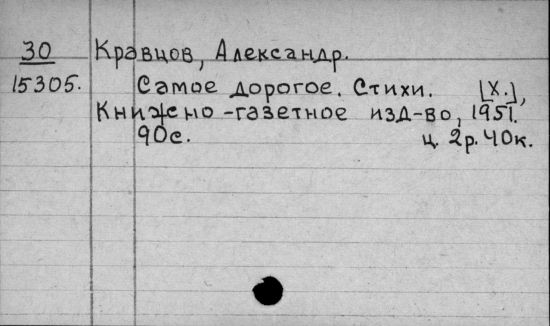 30 Кравцов, Александр.
15305. Самое дорогое. Стихи. [Х.],
Книжно-газетное изд-во, 1951.
90с. ц. 2р. 40к.